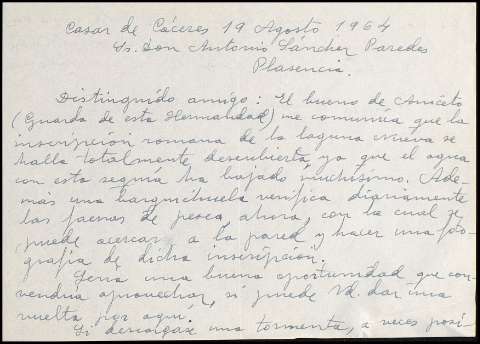 Casar de Cáceres 19 Agosto 1964
Sr. Don Antonio Sánchez Paredes
Plasencia.
Distinguido amigo: El bueno de Aniceto
(Guarda de esta Hermandad) me comunica que la
inscripción romana de la laguna nueva se
halla totalmente descubierta, ya que el agua
con esta sequía ha bajado muchísimo. Ade-
más una barquichuela verifica diariamente
las faenas de pesca ahora, con la cual se
puede acercar a la pared y hacer una foto-
grafía de dicha inscripción.
Sería una buena oportunidad que con-
vendría aprovechar, si puede Vd. dar una
vuelta por aquí.
Si descargase una tormenta, a veces posi-